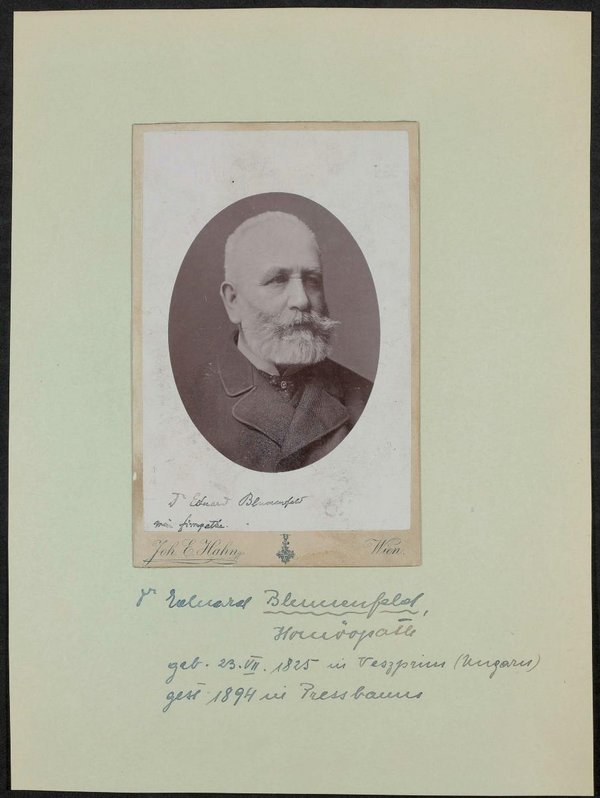 Dr Eduard Blumenfeld
mein Firmpathe.
Joh. E. Hahn
Wien.
Dr Eduard Blumenfeld,
Homöopath
geb. 23. VII. 1825 in Veszprim (Ungarn)
gest 1894 in Pressbaum